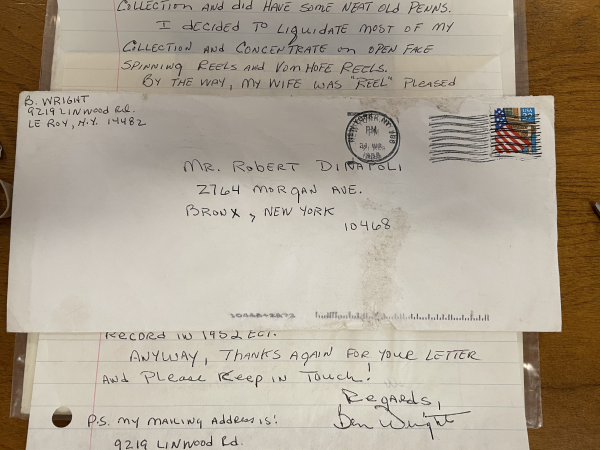 COLLECTION AND DID HAVE SOME NEAT OLD PENNS.
I DECIDED TO LIQUIDATE MOST OF MY
COLLECTION AND CONCENTRATE ON OPEN FACE
SPINNING REELS AND VOM HOFE REELS.
BY THE WAY, MY WIFE WAS "REEL" PLEASED
B. WRIGHT
9219 LINWOOD Rd.
LE ROY, N.Y. 14482
NEW YORK NY
PM
USA
MR. ROBERT DINAPOLI
2764 MORGAN AVE.
BRONX, NEW YORK
10468
RECORD IN 1952 ECT.
ANYWAY, THANKS AGAIN FOR YOUR LETTER
AND PLEASE KEEP IN TOUCH!
REGARDS,
Ben Wright
P.S. MY MAILING ADDRESS IS:
9219 LINWOOD Rd.